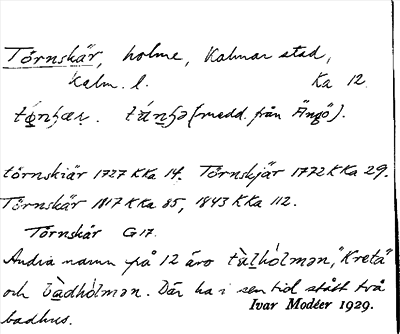 Törnskär, holme, Kalmar stad,
Kalm. l. Ka 12.
tö̀nʂær. tǿnʂə (medd. från Ängö).
törnskiär 1727 KKa 14. Törnskjär 1772 KKa 29.
Törnskär 1817 KKa 85, 1843 KKa 112.
Törnskär G 17.
Andra namn på 12 äro tàlhólmən, "Kreta"
och bàdhòlmən. Där ha i sen tid stått två
badhus.
Ivar Modéer 1929.